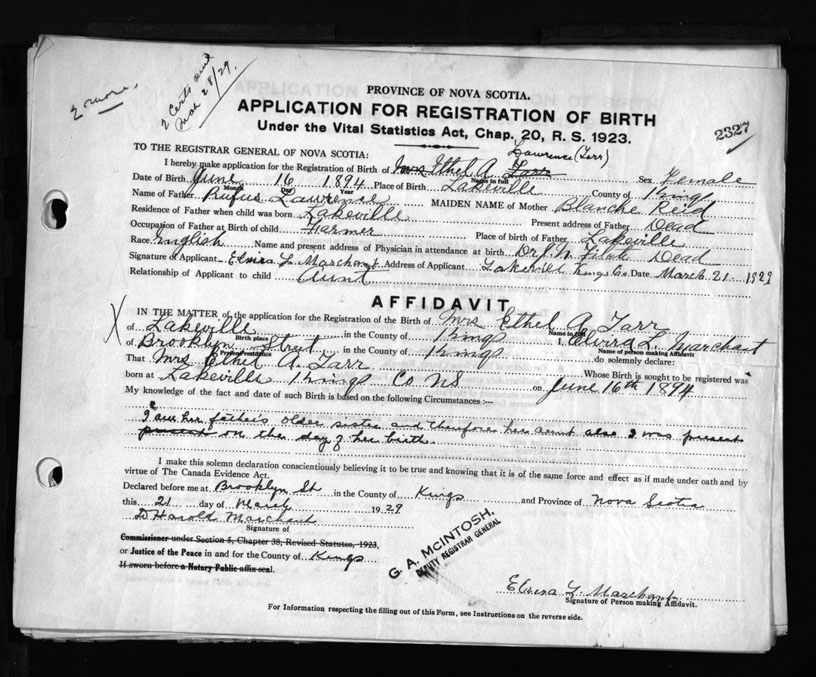 2 more.
2 Certs sent
Mar 28/29.
PROVINCE OF NOVA SCOTIA.
APPLICATION FOR REGISTRATION OF BIRTH
Under the Vital Statistics Act, Chap. 20, R. S. 1923.
2327
TO THE REGISTRAR GENERAL OF NOVA SCOTIA:
Lawrence (Tarr)
I hereby make application for the Registration of Birth of Mrs Ethel A. Tarr Name in full Sex Female
Date of Birth June 16 1894 Place of Birth Lakeville County of Kings
Month Day Year
Name of Father Rufus Lawrence MAIDEN NAME of Mother Blanche Reid
Residence of Father when child was born Lakeville Present address of Father Dead
Occupation of Father at Birth of child Farmer Place of birth of Father Lakeville
Race English Name and present address of Physician in attendance at birth Dr Dead
Signature of Applicant Elvira L. Marchant Address of Applicant Lakeville Kings Co. Date March 21 1929
Relationship of Applicant to child Aunt
AFFIDAVIT
IN THE MATTER of the application for the Registration of the Birth of Mrs Ethel A Tarr
Name in full
X
of Lakeville in the County of Kings I, Elvira L. Marchant
Birth place Name of person making Affidavit
of Brooklyn Street in the County of Kings do solemnly declare:
Present residence
That Mrs Ethel A. Tarr Whose Birth is sought to be registered was
born at Lakeville Kings Co NS on June 16th 1894
My knowledge of the fact and date of such Birth is based on the following Circumstances :—
I am her father's older sister and therefore her aunt also I was present
present on the day of her birth.
I make this solemn declaration conscientiously believing it to be true and knowing that it is of the same force and effect as if made under oath and by
virtue of The Canada Evidence Act.
Declared before me at Brooklyn St in the County of Kings and Province of Nova Scotia
this 21 day of March 1929
D Harold Marchant
Signature of
Commissioner under Section 5, Chapter 38, Revised Statutes, 1923,
or Justice of the Peace in and for the County of Kings
If sworn before a Notary Public affix seal.
G. A. McINTOSH.
DEPUTY REGISTRAR GENERAL
Elvira L. Marchant
Signature of Person making Affidavit.
For Information respecting the filling out of this Form, see Instructions on the reverse side.